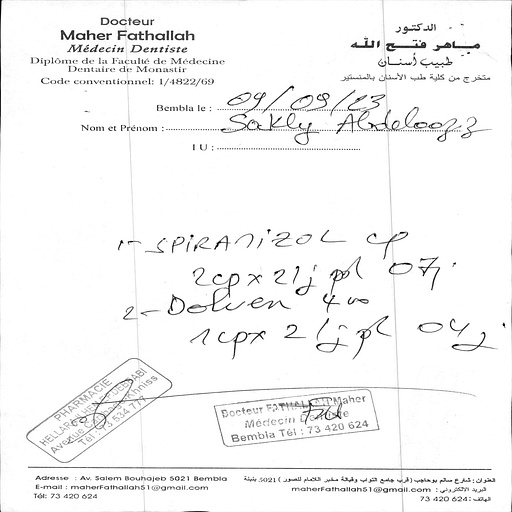 Docteur
Maher Fathallah
Médecin Dentiste
Diplôme de la Faculté de Médecine
Dentaire de Monastir
Code conventionnel: 1/4822/69
الدكتور
ماهر فتح الله
طبيب أسنان
متخرج من كلية طب الأسنان بالمنستير
Bembla le : 09/09/23
Nom et Prénom : Sakly
I U :
1- SPIRANIZOL cp
2cp x 2/j pl 07j
2- Dolven 400
1cp x 2/j pl 04j
PHARMACIE
Avenue
Khniss
Tél : 73 534 771
Docteur FATHALLAH Maher
Médecin Dentiste
Bembla Tél : 73 420 624
Adresse : Av. Salem Bouhajeb 5021 Bembla
E-mail : maherFathallah51@gmail.com
Tél: 73 420 624
العنوان : شارع سالم بوحاجب (قرب جامع التواب وقبالة مخبر اللمام للصور) 5021 بنبلة
البريد الالكتروني : maherFathallah51@gmail.com
الهاتف : 73 420 624